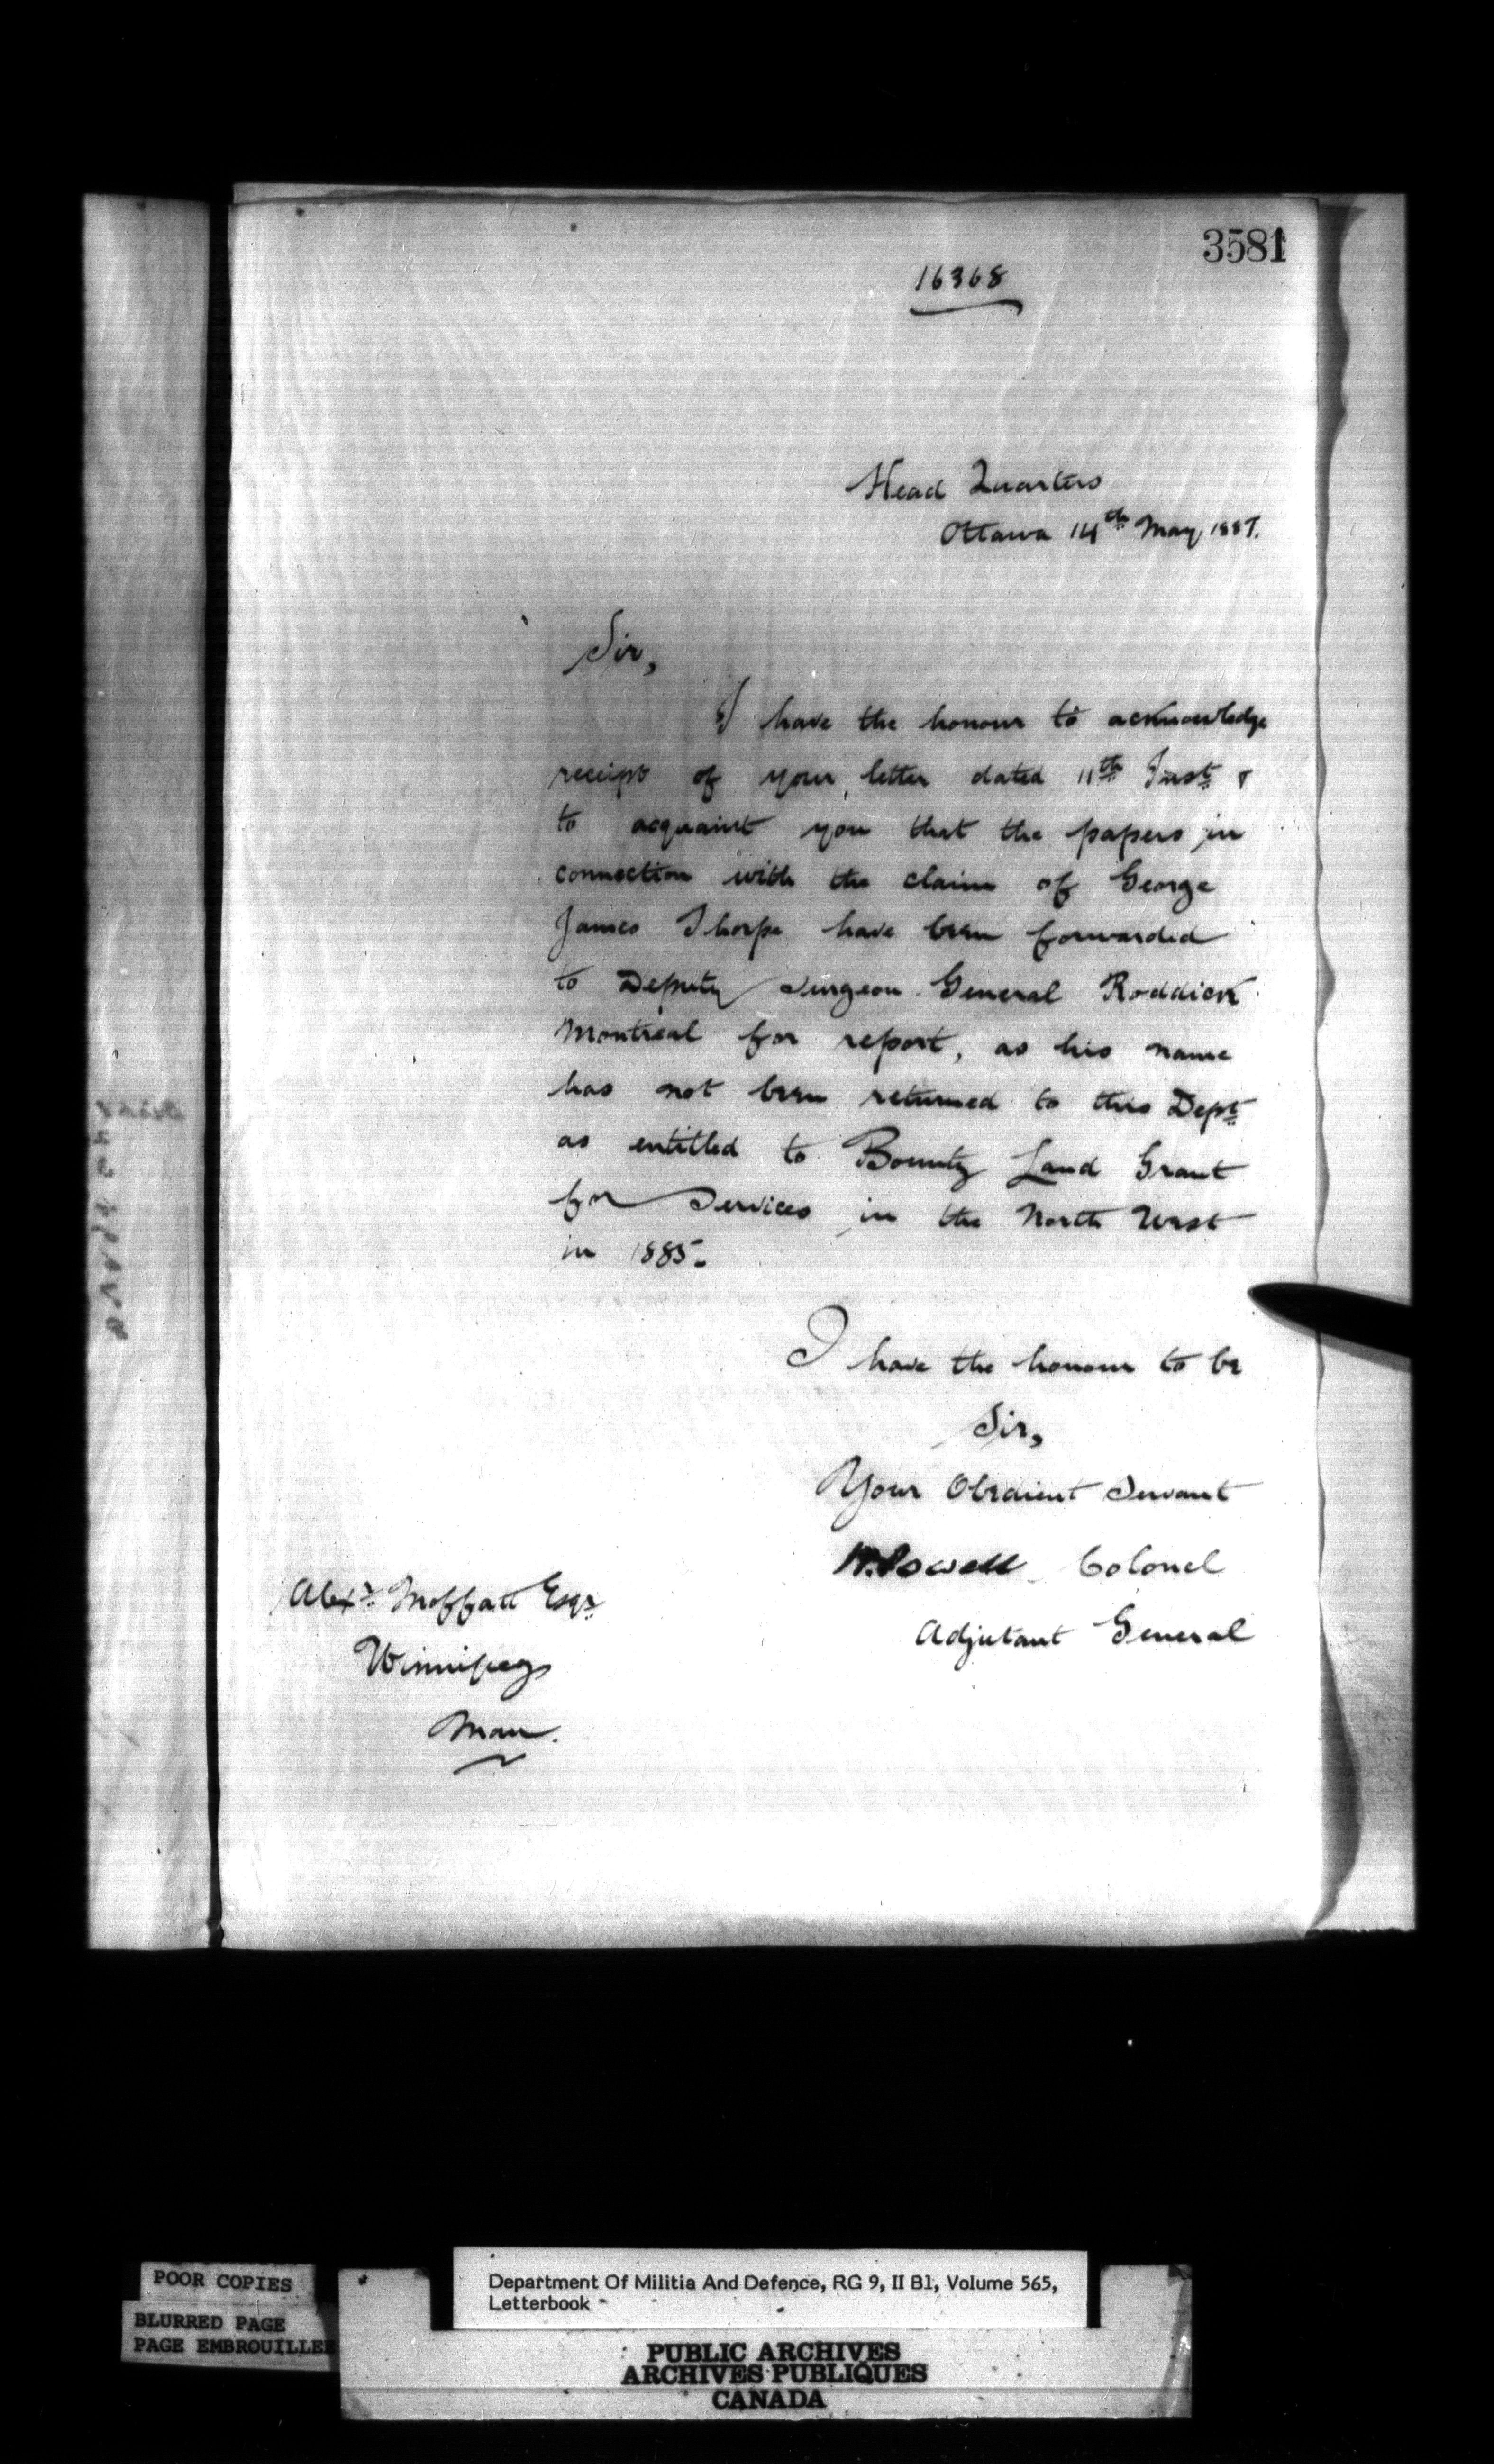 3581
16368
Head Quarters
Ottawa 14th May 1887.
Sir,
I have the honour to acknowledge
receipt of your letter dated 11th Inst &
to acquaint you that the papers in
connection with the claim of George
James Thorpe have been forwarded
to Deputy Surgeon General Roddick
Montreal for report, as his name
has not been returned to this Dept
as entitled to Bounty Land Grant
for Services in the North West
in 1885.
I have the honour to be
Sir,
Your Obedient Servant
W. Powell Colonel
Adjutant General
Alexr Moffatt Esqr
Winnipeg
Man.
POOR COPIES
BLURRED PAGE
PAGE EMBROUILLEE
Department Of Militia And Defence, RG 9, II B1, Volume 565,
Letterbook
PUBLIC ARCHIVES
ARCHIVES PUBLIQUES
CANADA